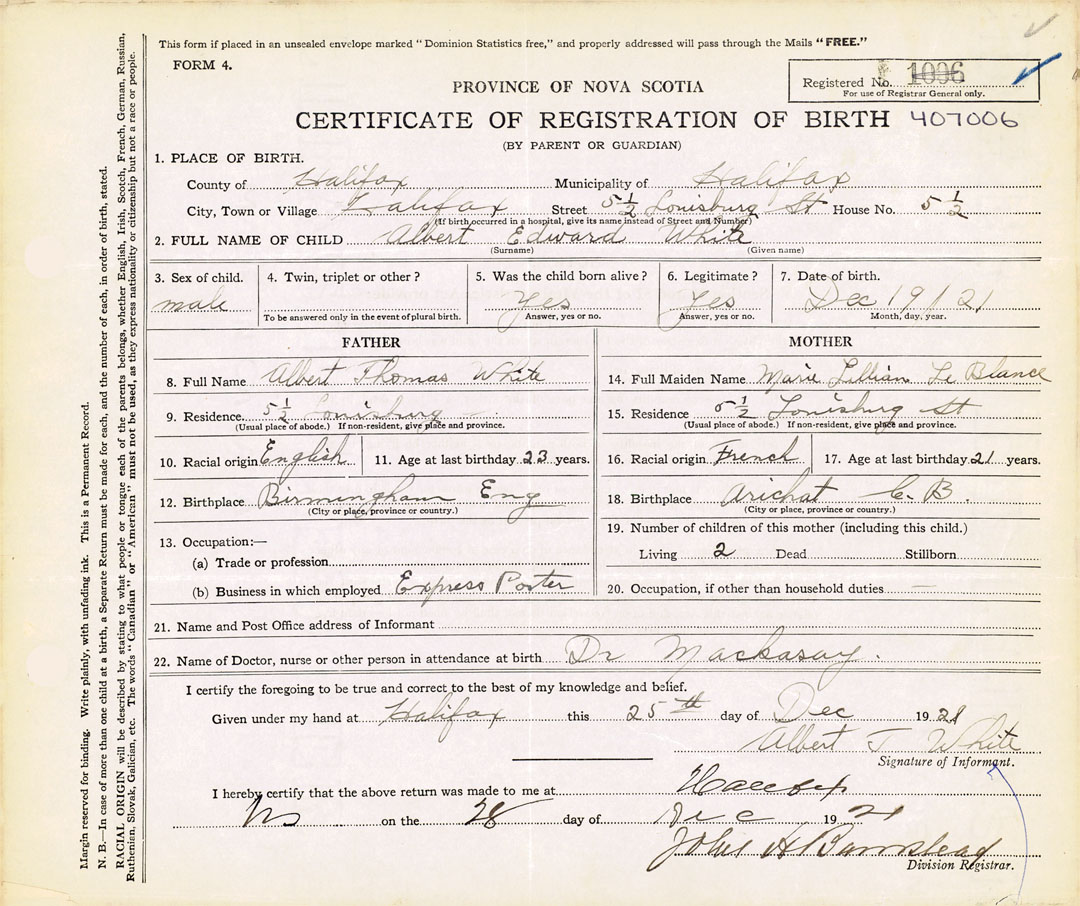 This form if placed in an unsealed envelope marked "Dominion Statistics free," and properly addressed will pass through the Mails "FREE."
FORM 4.
Registered No. 1006
For use of Registrar General only.
PROVINCE OF NOVA SCOTIA
CERTIFICATE OF REGISTRATION OF BIRTH 407006
(BY PARENT OR GUARDIAN)
1. PLACE OF BIRTH.
County of Halifax Municipality of Halifax
City, Town or Village Halifax Street 5 1/2 Louisburg St House No. 5 1/2
(If birth occurred in a hospital, give its name instead of Street and Number)
2. FULL NAME OF CHILD Albert Edward White
(Surname) (Given name)
3. Sex of child. 4. Twin, triplet or other? 5. Was the child born alive? 6. Legitimate? 7. Date of birth.
male Yes Yes Dec 19/21
To be answered only in the event of plural birth. Answer, yes or no. Answer, yes or no. Month, day, year.
FATHER MOTHER
8. Full Name Albert Thomas White 14. Full Maiden Name Marie Lillian Le Blance
9. Residence. 5 1/2 Louisburg 15. Residence 5 1/2 Louisburg St
(Usual place of abode.) If non-resident, give place and province. (Usual place of abode.) If non-resident, give place and province.
10. Racial origin English 11. Age at last birthday 23 years. 16. Racial origin French 17. Age at last birthday 21 years.
12. Birthplace Birmingham Eng 18. Birthplace Arichat C. B.
(City or place, province or country.) (City or place, province or country.)
19. Number of children of this mother (including this child.)
13. Occupation:—
Living 2 Dead Stillborn
(a) Trade or profession
(b) Business in which employed Express Porter 20. Occupation, if other than household duties —
21. Name and Post Office address of Informant
22. Name of Doctor, nurse or other person in attendance at birth Dr
I certify the foregoing to be true and correct to the best of my knowledge and belief.
Given under my hand at Halifax this 25th day of Dec 1921
Albert T White
Signature of Informant.
I hereby certify that the above return was made to me at Halifax
on the 28 day of Dec 1921
John H Barnstead
Division Registrar.
Margin reserved for binding. Write plainly, with unfading ink. This is a Permanent Record.
N. B.—In case of more than one child at a birth, a Separate Return must be made for each, and the number of each, in order of birth, stated.
RACIAL ORIGIN will be described by stating to what people or tongue each of the parents belongs, whether English, Irish, Scotch, French, German, Russian,
Ruthenian, Slovak, Galician, etc. The words "Canadian" or "American" must not be used, as they express nationality or citizenship but not a race or people.